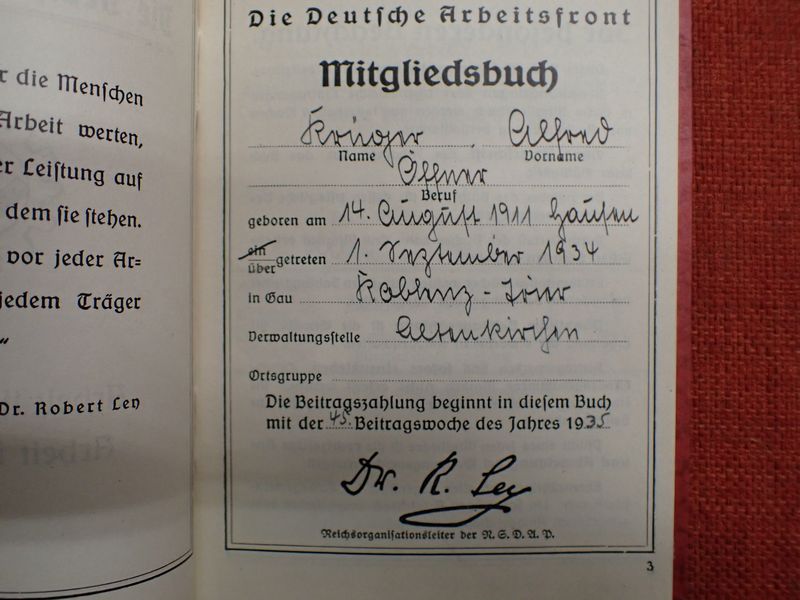 r die Menschen
Arbeit werten,
er Leistung auf
dem sie stehen.
vor jeder Ar=
jedem Träger
“
Dr. Robert Ley
Die Deutsche Arbeitsfront
Mitgliedsbuch
Krüger Alfred
Name Vorname
Beruf
geboren am 14. August 1911 Hausen
ein
übergetreten 1. September 1934
in Gau Koblenz - Trier
Verwaltungsstelle Altenkirchen
Ortsgruppe
Die Beitragszahlung beginnt in diesem Buch
mit der 45. Beitragswoche des Jahres 1935.
Dr. R. Ley
Reichsorganisationsleiter der N.S.D.A.P.
3